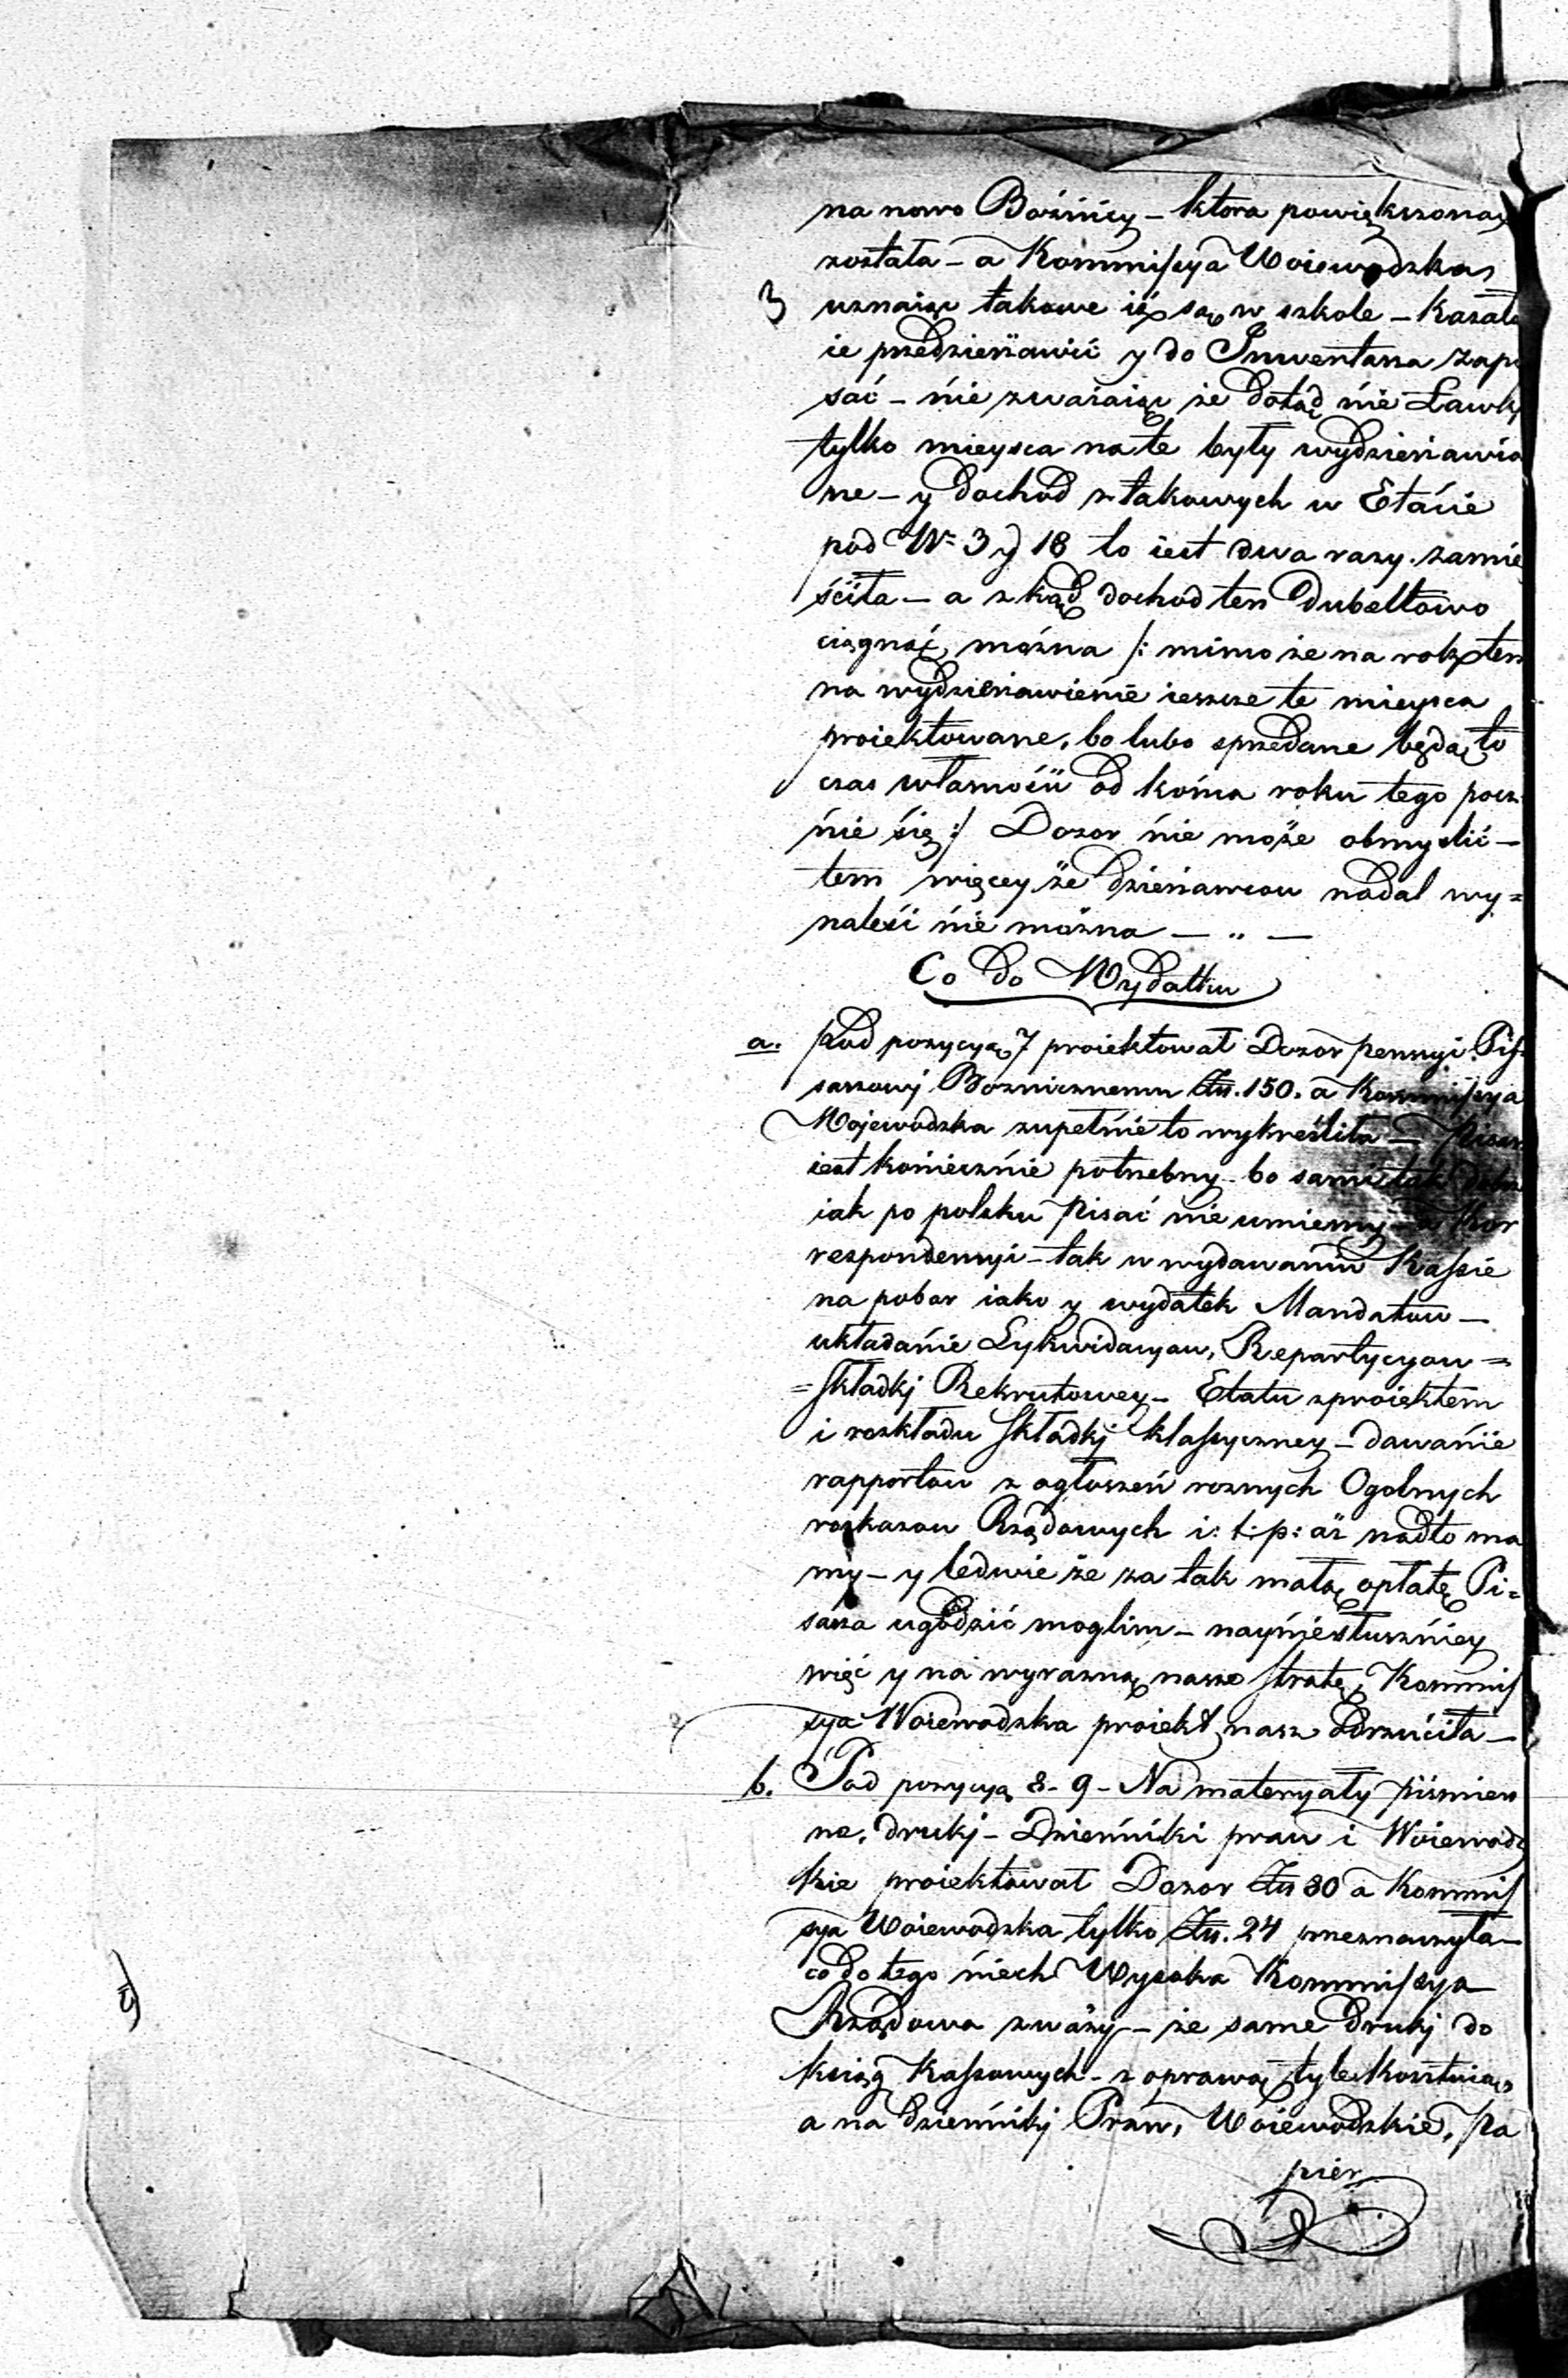 na nowo Bożnicy – ktora powiększona
została – a Kommissya Woiewodzka
3 uznaiąc takowe iż są w szkole – kazała
ie przedzierżawić y do Inwentarza zapi
sać – nie zważaiąc że dotąd nie Ławki
tylko mieysca na te były wydzierżawio
ne – y dochod z takowych w Etacie
pod Nr 3 y 18 to iest dwa razy zamie
ściła – a z kąd dochod ten dubeltowo
ciągnąć można /: mimo że na rok ten
na wydzierżawienie ieszcze te mieysca
proiektowane, bo lubo sprzedane będą to
czas własności od końca roku tego pocz
nie się :/ Dozor nie może obmyslić –
tem więcey że dzierżawcow nadal wy=
naleść nie można – „ –
Co do Wydatku
a. Pod pozycyą 7 proiektował Dozor pensyi Pis
sarzowi Bożnicznemu Złp. 150. a Kommissya
Wojewodzka zupełnie to wykreśliła – Pisarz
iest koniecznie potrzebny – bo sami tak
iak po polsku pisać nie umiemy – a Kor
respondencyi – tak w wydawaniu Kassie
na pobor iako y wydatek Mandatow –
układanie Lykwidacyow, Repartycyow =
= składki Rekrutowey – Etatu z proiektem
i rozkładu składki klassyczney – dawanie
rapportow z ogłoszeń roznych Ogolnych
rozkazow Rządowych i: t: p: aż nadto ma
my – y ledwie że za tak małą opłatę Pi=
sarza ugodzić moglim – nayniesłuszniey
więc y na wyrazną nasze stratę, Kommis
sya Woiewodzka proiekt nasz odrzuciła –
b. Pod pozycyą 8 – 9 – Na materyały piśmien
ne, druki – Dzienniki praw i Woiewodz
kie proiektował Dozor Złp 80 a Kommis
sya Woiewodzka tylko Złp. 24 przeznaczyła –
co do tego niech Wysoka Kommissya
Rządowa zważy – że same druki do
ksiąg Kassowych – z oprawą tyle kosztuią,
a na dzienniki Praw, Woiewodzkie, Pa
pier